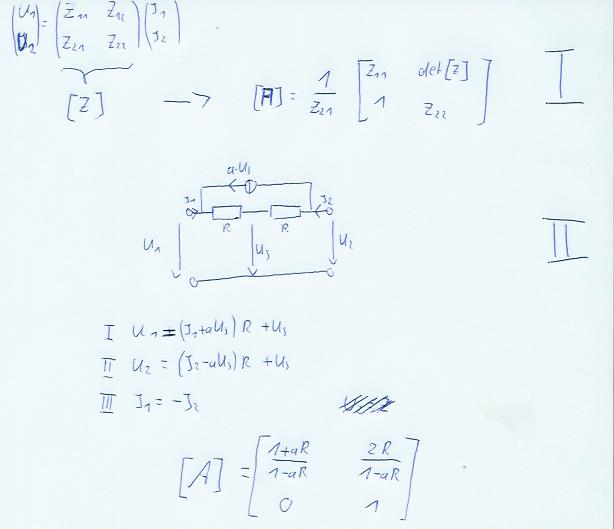 (U1 U2) = (Z11 Z12 Z21 Z22) (I1 I2)
[Z] → [A] = 1/Z21 [Z11 det[Z] 1 Z22]
I
a·U3
I1 I2
R R
U1 U3 U2
II
I U1 = (I1+aU3) R + U3
II U2 = (I2-aU3) R + U3
III I1 = -I2
[A] = [1+aR/1-aR 2R/1-aR 0 1]